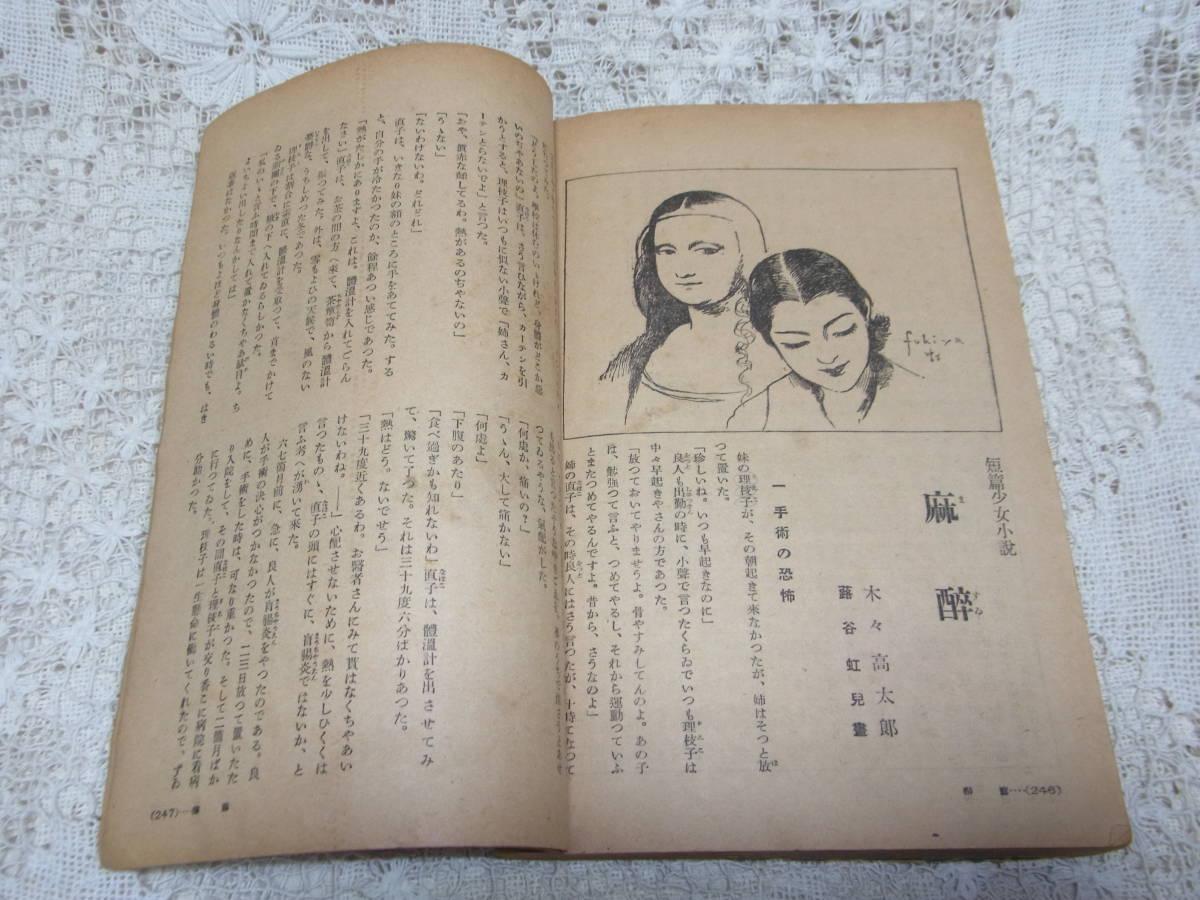 短篇少女小説
麻醉
ますゐ
木々高太郎
蕗谷虹兒畫
fukiya
一 手術の恐怖
妹の理枝子が、その朝起きて来なかつたが、姉はそつと放
つて置いた。
「珍しいね。いつも早起きなのに」
良人も出勤の時に、小聲で言つたくらゐでいつも理枝子は
中々早起きやさんの方であつた。
「放つておいてやりませうよ。骨やすみしてんのよ。あの子
は、勉強つて言ふと、つめてやるし、それから運動つていふ
とまたつめてやるんですよ。昔から、さうなのよ」
姉の直子は、その時良人にはさう言つたが、十時てなつて
(246)
いのぢやあないの」直子は、さう言ひながら、カーテンを引
かうとすると、理枝子はいつもに似ない小聲で「姉さん、カ
ーテンとらないでよ」と言つた。
「おや、眞赤な顔してるわ。熱があるのぢやないの」
「うゝない」
「ないわけないわ。どれどれ」
直子は、いきなり妹の額のところに手をあててみた。する
と、自分の手が冷たかつたのか、餘程あつい感じであつた。
「熱がたしかにありますよ、これは。體溫計を入れてごらん
なさい」直子は、お茶の間の方へ来て、茶簞笥から體溫計
を出して、振つてみた。外は、雪もよひの天候で、風のない
理枝子は割合に素直に、體溫計を受取つて、首までかけて
ゐる羽團の下で、腋の下へ入れてゐるらしかつた。
つてゐるやうな、氣配がした。
「何處か、痛いの?」
「うゝん、大して痛かない」
「何處よ」
「下腹のあたり」
「食べ過ぎかも知れないわ」直子は、體溫計を出させてみ
て、驚いて了つた。それは三十九度六分ばかりあつた。
「熱はどう。ないでせう」
「三十九度近くあるわ。お醫者さんにみて貰はなくちやあい
けないわね。――」心配させないために、熱を少しひくくは
言つたものゝ、直子の頭にはすぐに、盲腸炎ではないか、と
言ふ考へが湧いて来た。
六七箇月前に、急に、良人が盲腸炎をやつたのである。良
人が手術の決心がつかなかつたので、二三日放つて置いたた
めに、手術をした時は、可なり重かつた。そして二箇月ばか
り入院をして、その間直子と理枝子が交り番こに病院に看病
に行つてゐた。理枝子は一生懸命に働いてくれたので、ずゐ
分助かつた。
(247)